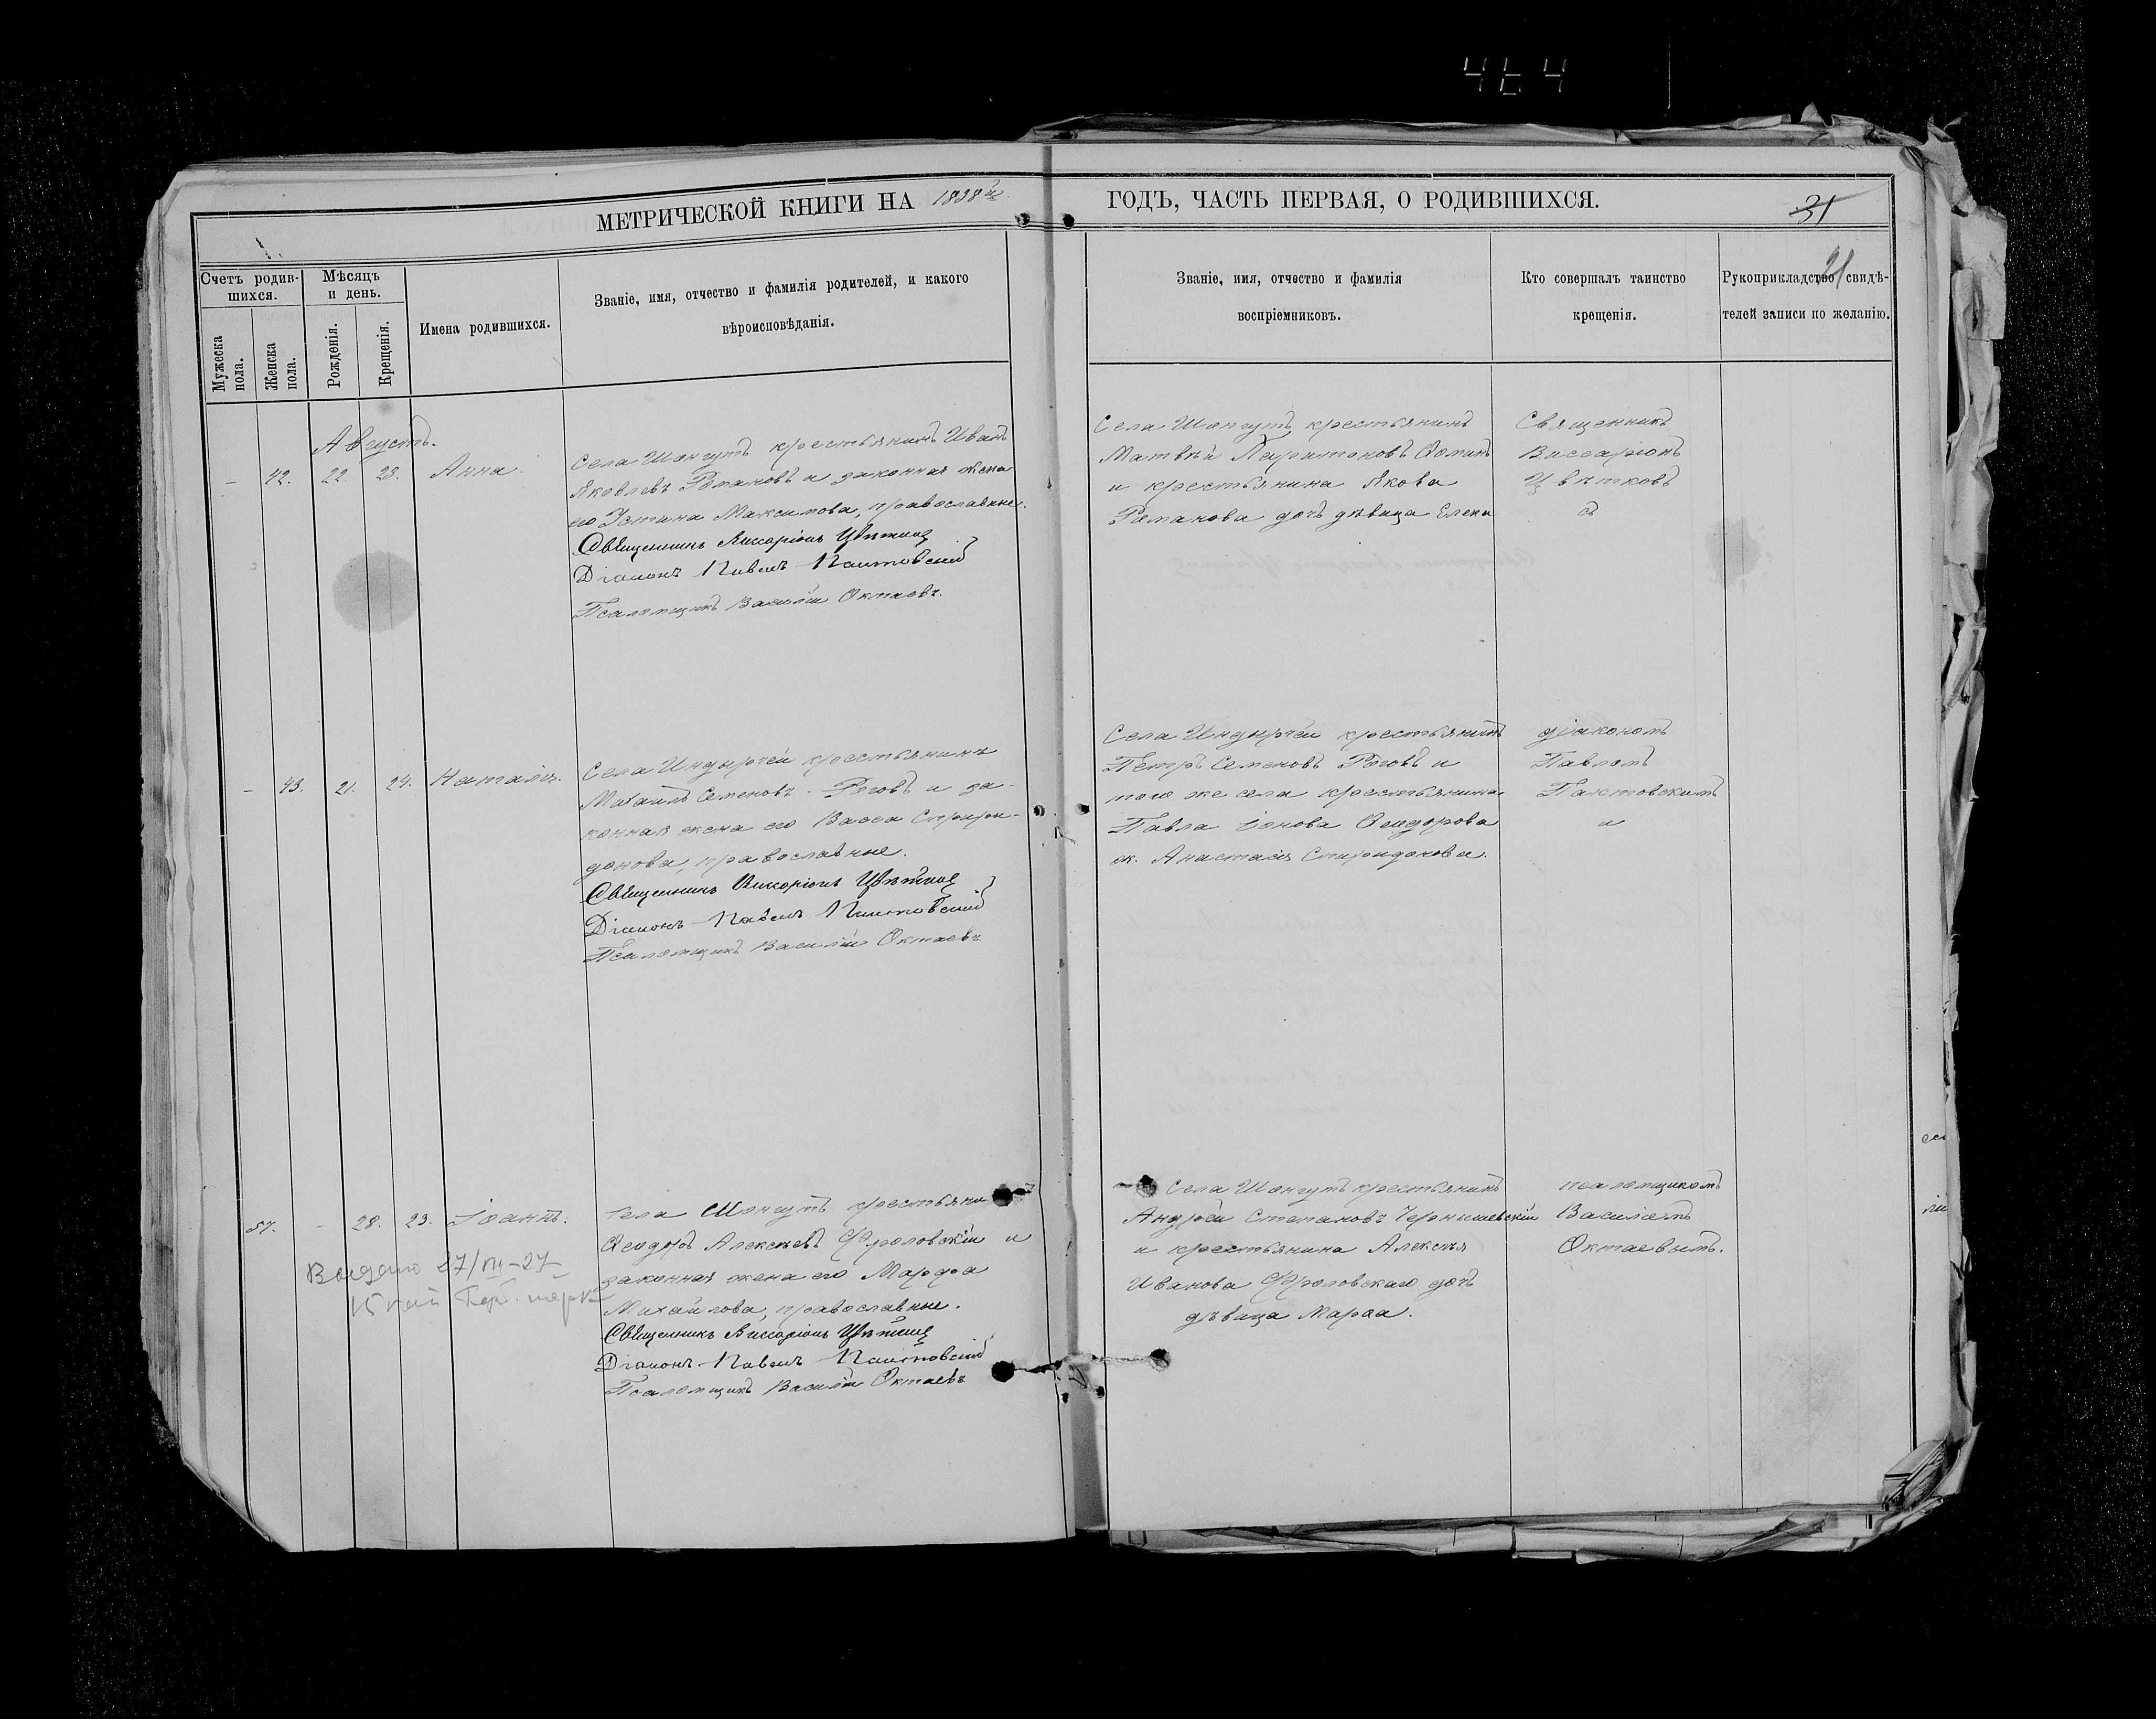 МЕТРИЧЕСКОЙ КНИГИ НА 1898й ГОДЪ, ЧАСТЬ ПЕРВАЯ, О РОДИВШИХСЯ.
31
Счетъ родив-
шихся.
Мужеска пола.
Женска пола.
Мѣсяцъ и день.
Рожденія.
Крещенія.
Имена родившихся.
Званіе, имя, отчество и фамилія родителей, и какого
вѣроисповѣданія.
Званіе, имя, отчество и фамилія
воспріемниковъ.
Кто совершалъ таинство
крещенія.
Рукоприкладство свидѣ-
телей записи по желанію.
Августъ.
– 42. 22. 23. Анна.
Села Шонгутъ крестьянинъ Иванъ
Яковлевъ Романовъ и законная жена
его Устина Максимова, православные.
Священникъ Виссаріонъ Цвѣтковъ
Діаконъ Павелъ Пактовскій
Псаломщикъ Василій Октаевъ.
Села Шонгутъ крестьянинъ
Матвѣй Харитоновъ Ѳоминъ
и крестьянина Якова
Романова дочь дѣвица Елена
Священникъ
Виссаріонъ
Цвѣтковъ
съ
– 43. 21. 24. Наталія.
Села Индырчей крестьянинъ
Михаилъ Семеновъ Роговъ и за-
конная жена его Васса Спири-
донова, православные.
Священникъ Виссаріонъ Цвѣтковъ
Діаконъ Павелъ Пактовскій
Псаломщикъ Василій Октаевъ
Села Индырчей крестьянинъ
Петръ Семеновъ Роговъ и
того же села крестьянина
Павла Іонова Ѳеодорова
ж. Анастасія Спиридонова.
діакономъ
Павломъ
Пактовскимъ
и
57. – 28. 29. Іоаннъ.
Выдано 27/VII-27
Села Шонгутъ крестьяни
Ѳеодоръ Алексѣевъ Фроловскій и
законная жена его Марѳа
Михайлова, православные.
Священникъ Виссаріонъ Цвѣтковъ
Діаконъ Павелъ Пактовскій
Псаломщикъ Василій Октаевъ
Села Шонгутъ крестьянинъ
Андрей Степановъ Чернышевскій
и крестьянина Алексѣя
Иванова Фроловскаго дочь
дѣвица Марѳа.
псаломщикомъ
Василіемъ
Октаевымъ.